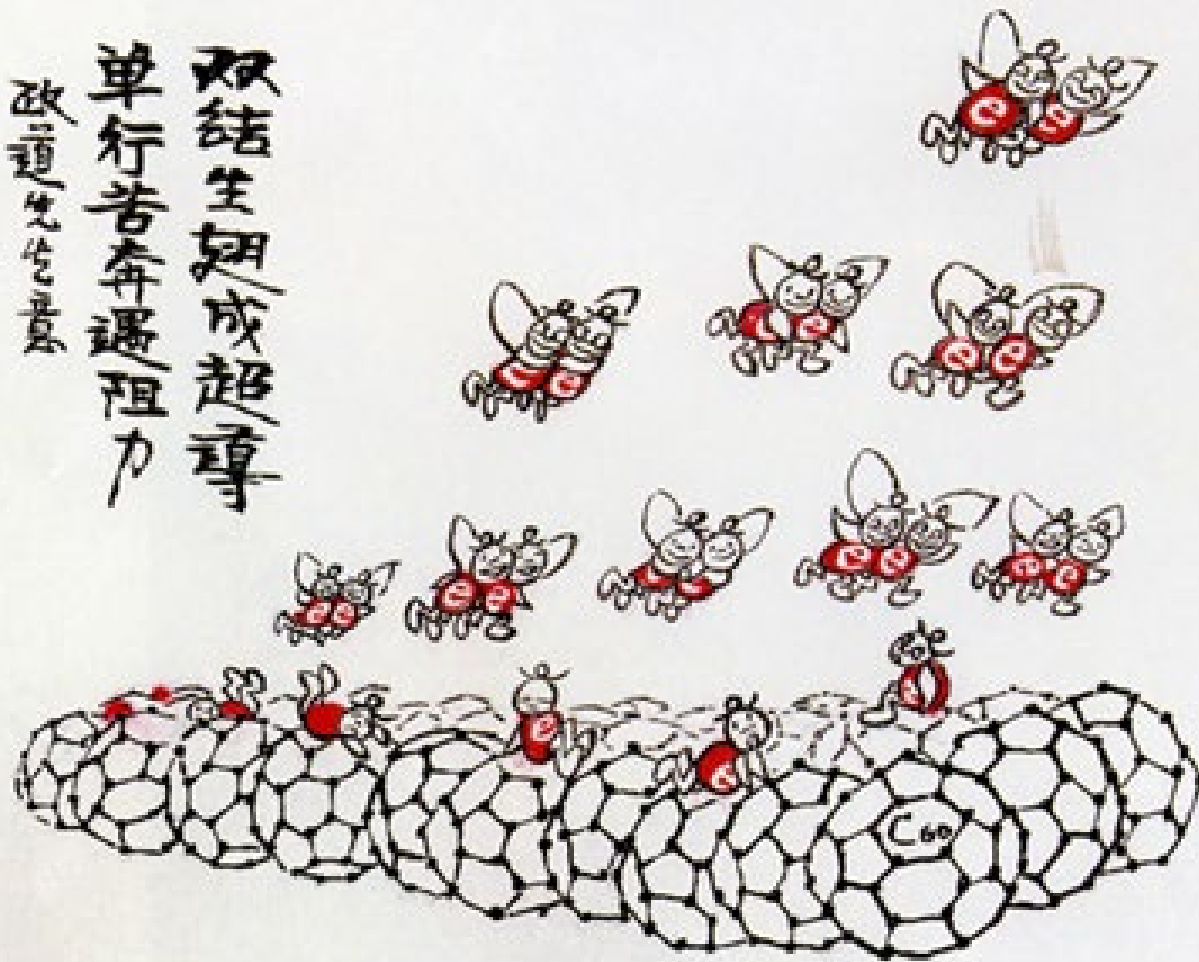 双结生翅成超导
单行苦奔遇阻力
政道先生意
e e
e e
e e
e e
e e
e e
e e
e e
e
e
C60